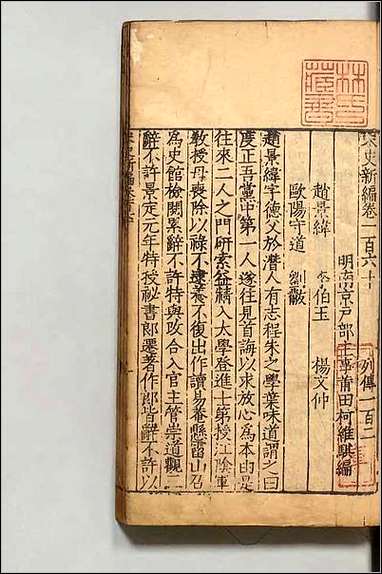 宋史新編卷一百六十
列傳一百二
明南京戶部主事莆田柯維騏編
趙景緯
李伯玉
楊文仲
歐陽守道
劉黻
趙景緯字德父於潛人有志程朱之學葉味道謂之曰
度正吾黨中第一人遂往見首誨以求放心為本由是
往來二人之門研索益精入太學登進士第授江陰軍
教授母喪除以祿不逮養不復出作讀易菴縣霅山召
為史館檢閱累辭不許特與改合入官主管崇道觀二
辭不許景定元年特授祕書郎遷著作郎皆辭不許以